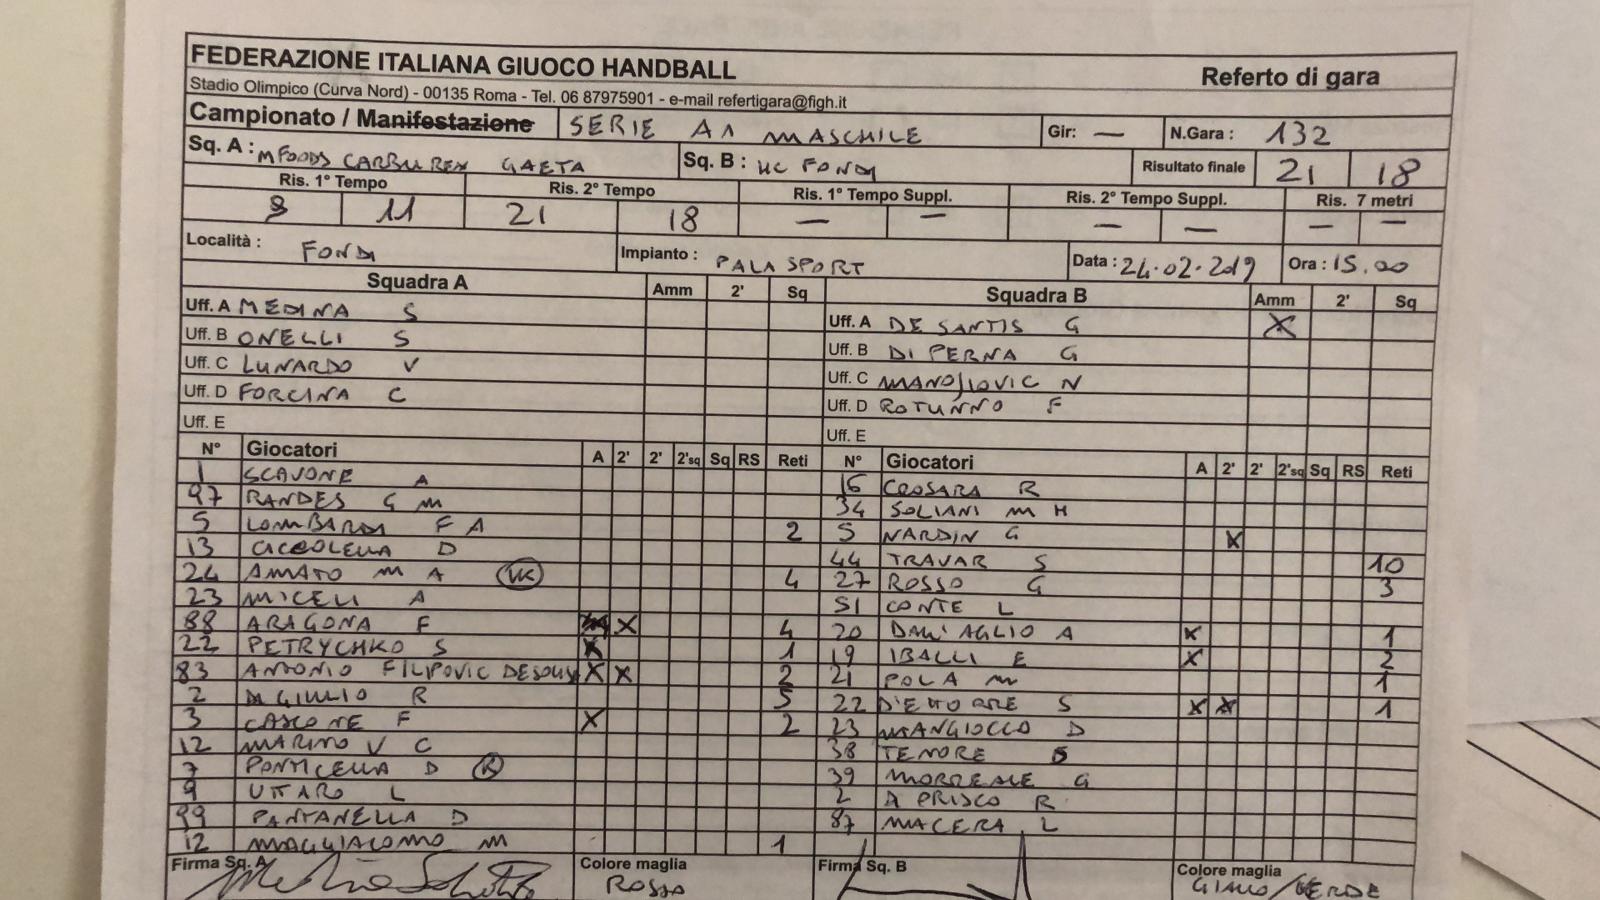 FEDERAZIONE ITALIANA GIUOCO HANDBALL Referto di gara
Stadio Olimpico (Curva Nord) - 00135 Roma - Tel. 06 87975901 - e-mail refertigara@figh.it
Campionato / Manifestazione SERIE A1 MASCHILE Gir: — N.Gara : 132
Sq. A : MFOODS CARBUREX GAETA Sq. B : HC FONDI Risultato finale 21 18
Ris. 1° Tempo Ris. 2° Tempo Ris. 1° Tempo Suppl. Ris. 2° Tempo Suppl. Ris. 7 metri
11 21 18 — — — — — —
Località : FONDI Impianto : PALASPORT Data : 24.02.2019 Ora : 15.00
Squadra A Amm 2' Sq Squadra B Amm 2' Sq
Uff. A MEDINA S Uff. A DE SANTIS G X
Uff. B ONELLI S Uff. B DI PERNA G
Uff. C LUNARDO V Uff. C MANOJLOVIC N
Uff. D FORCINA C Uff. D ROTUNNO F
Uff. E Uff. E
N° Giocatori A 2' 2' 2'sq Sq RS Reti N° Giocatori A 2' 2' 2'sq Sq RS Reti
1 SCAVONE A 16 CROSARA R
97 RANDES G M 34 SOLIANI M H
5 LOMBARDI F A 2 5 NARDIN G X
13 CICCOLELLA D 44 TRAVAR S 10
24 AMATO M A VK 4 27 ROSSO G 3
23 MICELI A 51 CONTE L
88 ARAGONA F X 4 20 DALL'AGLIO A X 1
22 PETRYCHKO S X 1 19 IBALLI E X 2
83 ANTONIO FILIPOVIC DESOUS X X 2 21 POLA M 1
2 DI GIULIO R 5 22 D'ETTORRE S X X 1
3 CASCONE F X 2 23 MANGIOCCO D
12 MARINO V C 38 TENORE S
7 PONTICELLA D K 39 MORREALE G
9 UTTARO L 2 DI PRISCO R
99 PANTANELLA D 87 MACERA L
12 MAGGIACOMO M 1
Firma Sq. A Colore maglia ROSSO Firma Sq. B Colore maglia GIALLO/VERDE